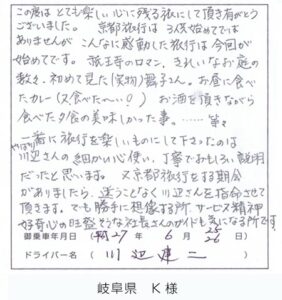 この度はとても楽しい心に残る旅にして頂き有がとう
ございました。 京都旅行は 3度始めてでは
ありませんが こんなに感動した旅行は今回が
始めてです。 祇王寺のロマン、きれいなお庭の
数々、初めて見た(実物)舞子さん。お昼に食べ
たカレー(又食べた〜い?) お酒を頂きながら
食べた夕食の美味しかった事。…… 等々
一番に旅行を楽しいものにして下さったのは
やはり川辺さんの細かい心使い、丁寧でおもしろい説明
だったと思います。 又京都旅行をする機会
がありましたら、迷うことなく川辺さんを指命させて
頂きます。でも勝手に想像する所、サービス精神
好奇心の旺盛そうな社長さんのガイドも気になる所です。
御乗車年月日 ( 27 年 6 月 25 26 日)
ドライバー名 ( 川辺 )
岐阜県 K 様